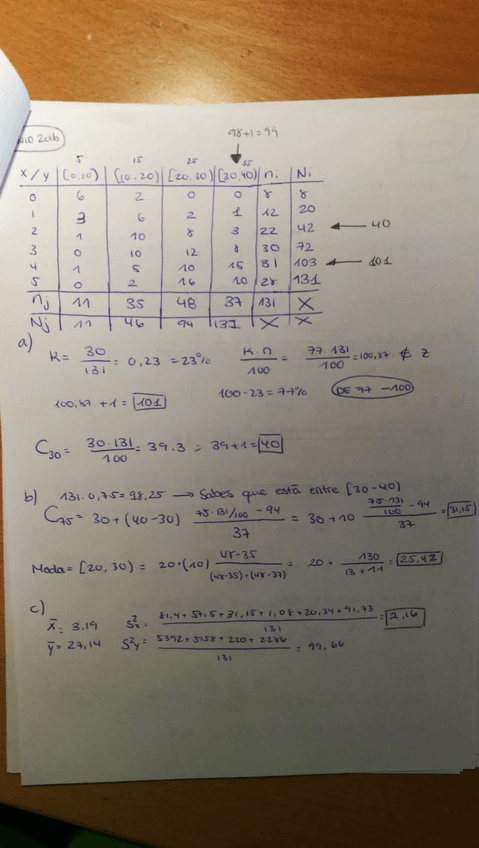 NIO 2016
98+1=99
5 15 25 35
x/y [0,10) [10,20) [20,30) [30,40) ni Ni
0 6 2 0 0 8 8
1 3 6 2 1 12 20
2 1 10 8 3 22 42 ← 40
3 0 10 12 8 30 72
4 1 5 10 15 31 103 ← 101
5 0 2 16 10 28 131
nj 11 35 48 37 131 X
Nj 11 46 94 131 X X
a)
K = 30/131 = 0,23 = 23% K·n/100 = 77·131/100 = 100,87 ∉ Z
100,87 +1 = 101 100-23 = 77% DE 77 -100
C30 = 30·131/100 = 39.3 = 39+1 = 40
b) 131·0,75 = 98,25 → Sabes que está entre [30-40)
C75 = 30+(40-30) 75·131/100 -94/37 = 30+10 75·131/100 -94/37 = 31,15
Moda = [20,30) = 20+(10) 48-35/(48-35)+(48-37) = 20+ 130/13+11 = 25,42
c)
x̄ = 3,19 S²x = 81,4+57,5+31,15+1,08+20,34+91,73/131 = 2,16
ȳ = 27,14 S²y = 5392+5158+220+2286/131 = 99,66